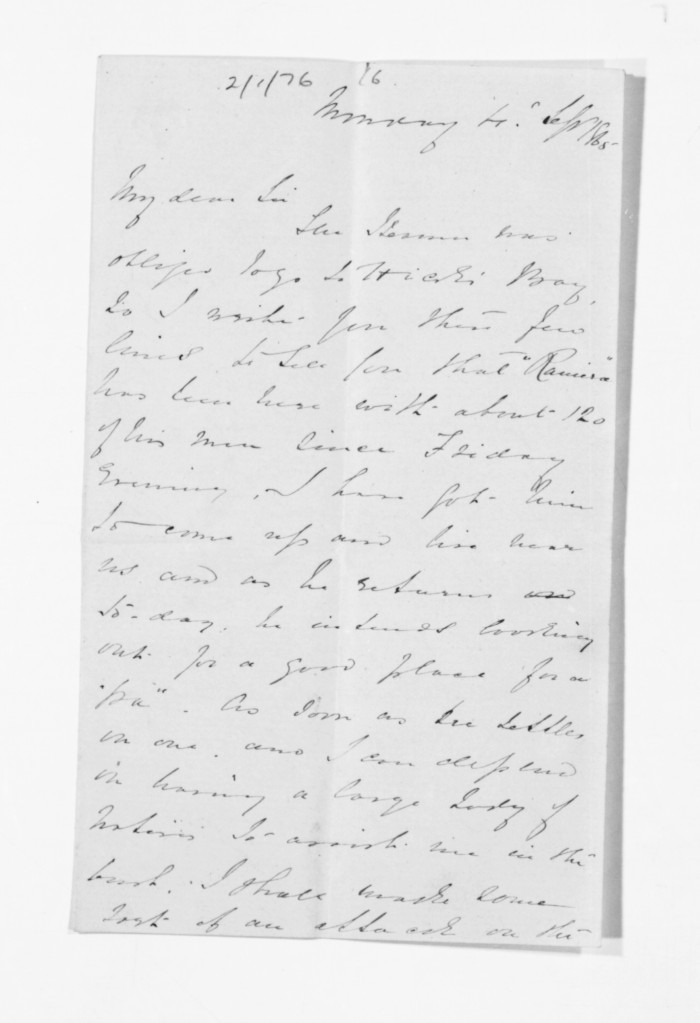 2/1/76 16
Monday 4th Sept 1865
My dear Sir
The Steamer was
obliged to go to Hicks Bay,
so I write you these few
lines to tell you that "Ranira"
has been here with about 120
of his men since Friday
Evening, I have got him
to come up and live near
us and as he returns
to-day, he intends looking
out for a good place for a
"pa". As soon as he settles
on one, and I can depend
on having a large body of
Natives to assist me in the
bush, I shall make some
sort of an attack on the